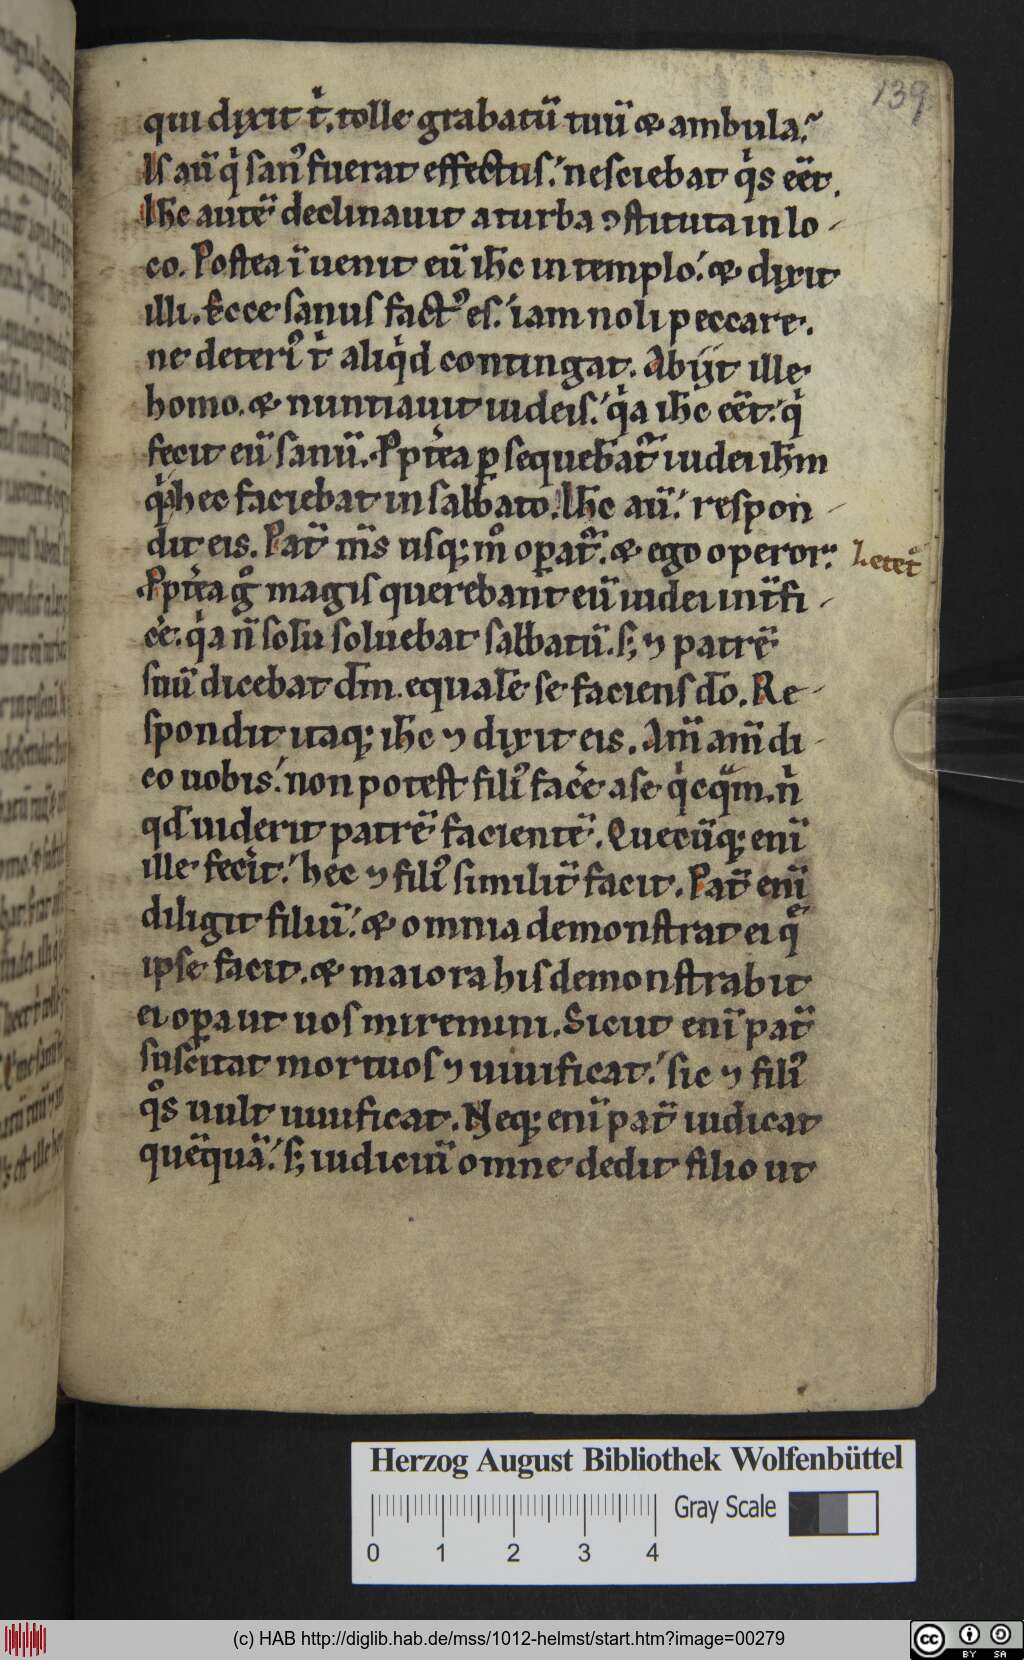 139
qui dixit t̍. tolle grabatū tuū & ambula.
Is aū q̍ san᾽ fuerat effectus. nesciebat q̍s eēt.
Ih̄c autē declinauit a turba ɔstituta in lo-
co. Postea īuenit eū ih̄c in templo. & dixit
illi. Ecce sanus fact᾽ es. iam noli peccare.
ne deteri᾽ t̍ aliq̍d contingat. Abijt ille
homo. & nuntiauit iudeis. q̍a ih̄c eēt. q̍
fecit eū sanū. Ppt̾ea ꝑsequebat᷑ iudei ih̄m
q̍a hec faciebat in sabbato. Ih̄c aū. respon-
dit eis. Pat̄ m̄s usq; m° oꝑat᷑. & ego operor.
Ppt̾ea g° magis querebant eū iudei int̄fi-
ce̾. q̍a n̄ solū soluebat sabbatū. s; ⁊ patrē
suū dicebat dm̄. equalē se faciens dō. Re-
spondit itaq; ih̄c ⁊ dixit eis. Am̄ am̄ di-
co uobis. non potest fili᾽ face̾ a se q̍cq̄m. n̍
qđ uiderit patrē facientē. Quecūq; enī
ille fecit̾. hec ⁊ fili᾽ similit̄ facit. Pat̄ enī
diligit filiū. & omnia demonstrat ei qͤ
ipse facit. & maiora his demonstrabit
ei oꝑa ut uos miremini. Sicut enī pat̄
suscitat mortuos ⁊ uiuificat. sic ⁊ fili᾽
q°s uult uiuificat. Neq; enī pat̄ iudicat
quēquā. s; iudiciū omne dedit filio ut
Herzog August Bibliothek Wolfenbüttel
Gray Scale
0 1 2 3 4
(c) HAB http://diglib.hab.de/mss/1012-helmst/start.htm?image=00279
cc BY SA